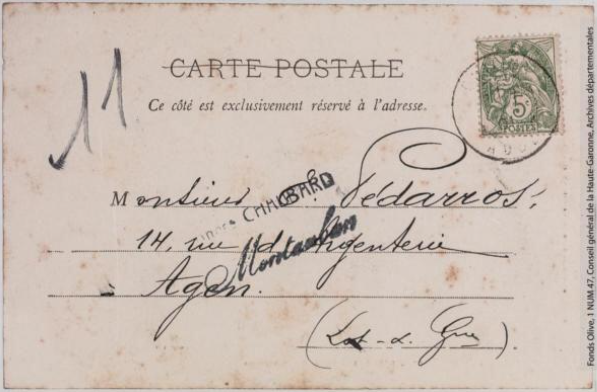 11
CARTE POSTALE
Ce côté est exclusivement réservé à l'adresse.
5c
POSTES
Monsieur Pédarros,
CHAUBARD
14, rue d'Argenterie
Montauban
Agen.
(Lot-&-Gne).
Fonds Olive, 1 NUM 47, Conseil général de la Haute-Garonne, Archives départementales